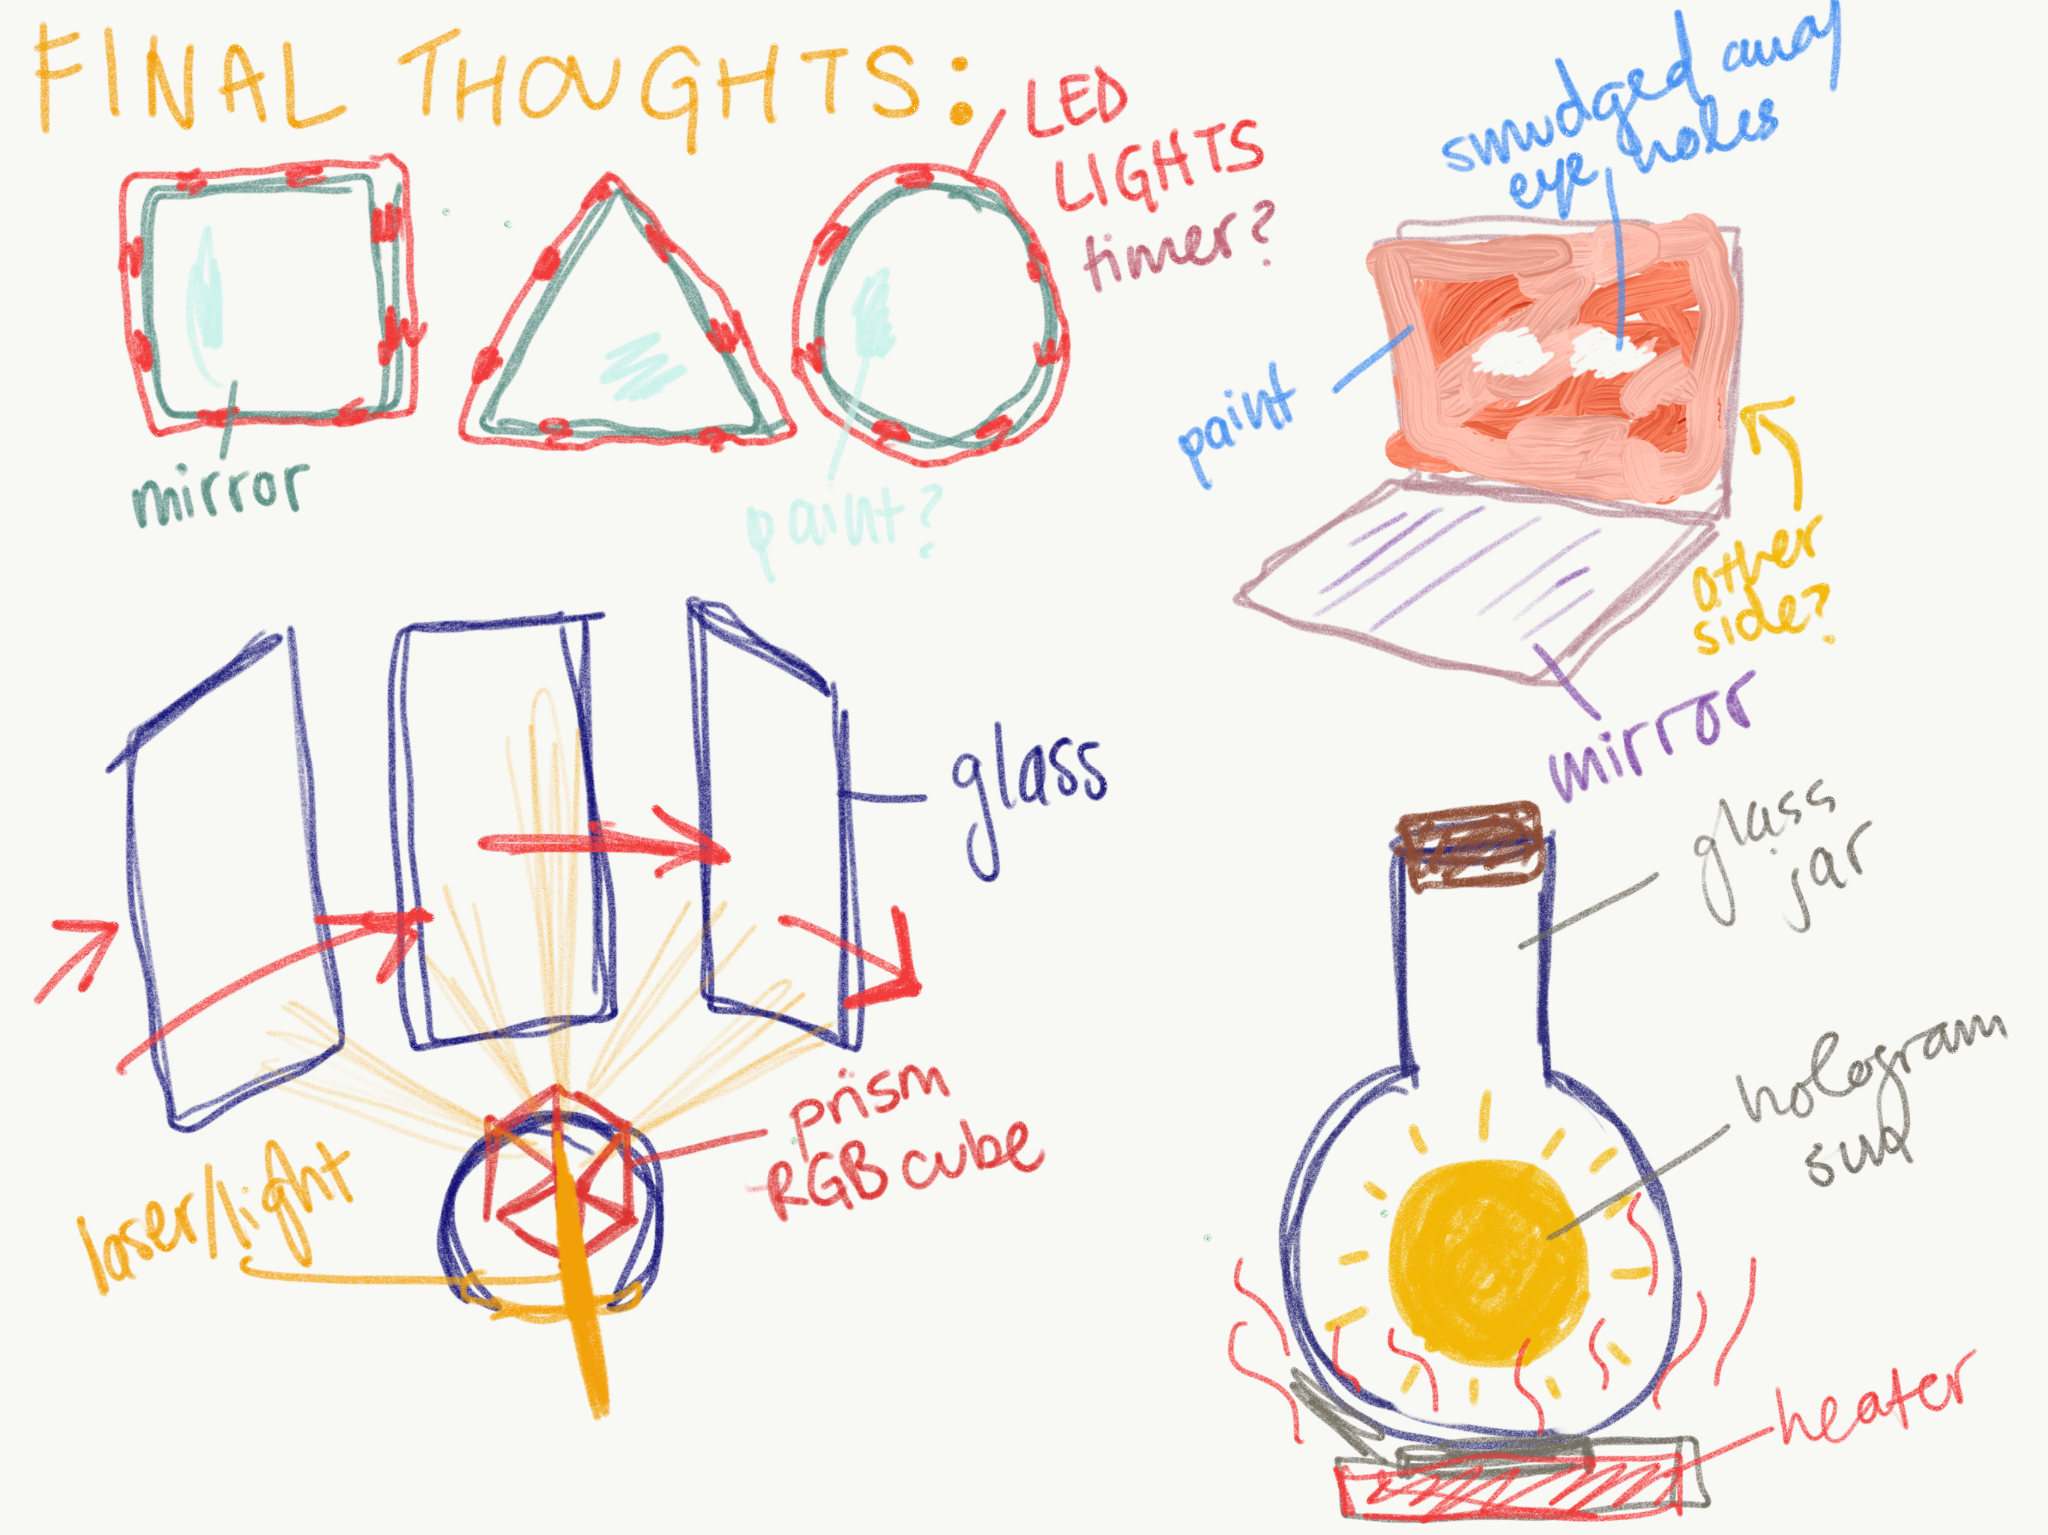 FINAL THOUGHTS:
LED
LIGHTS
timer?
mirror
paint?
smudged away
eye holes
paint
other
side?
mirror
glass
laser/light
prism
RGB cube
glass
jar
hologram
sun
heater